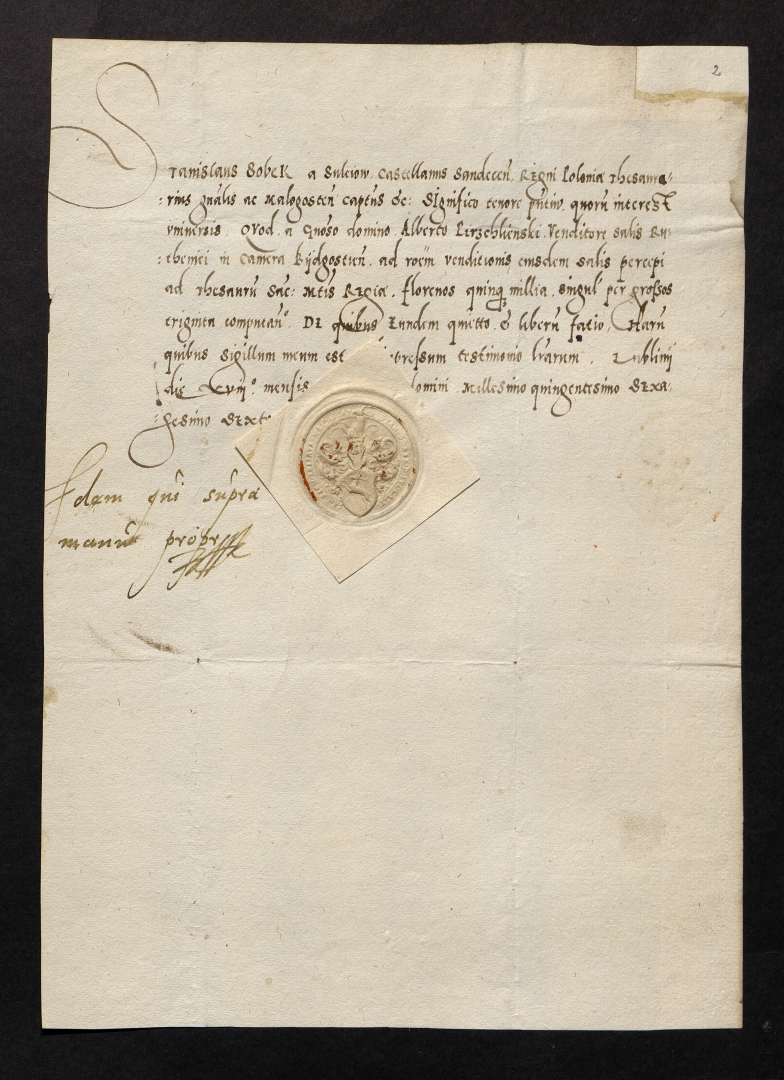 2
Stanislaus Sobek a Suleiow Castellanus Sandecen, Regni Poloniæ Thesaura-
-rius gnâlis ac Malogosten captns &c: Significo tenore pntiu quorū interest
vniuersis, Quod a Gnoso domino Alberto Pirzchlienski Venditore salis Ru-
-themici in Camera Bijdgostien, ad roēm venditionis eiusdem salis percepi
ad Thesaurū Sac: Mtis Regiæ, florenos quinq millia, singul per grossos
triginta computan°. De quibus Eundem quietto & liberū facio, Harū
quibus sigillum meum est pressum testimonio lrarum, Lublinij
die xviij° mensis omini Millesimo quingentesimo Sexa-
-gesimo Sexto
Idem qui supra
manu propr